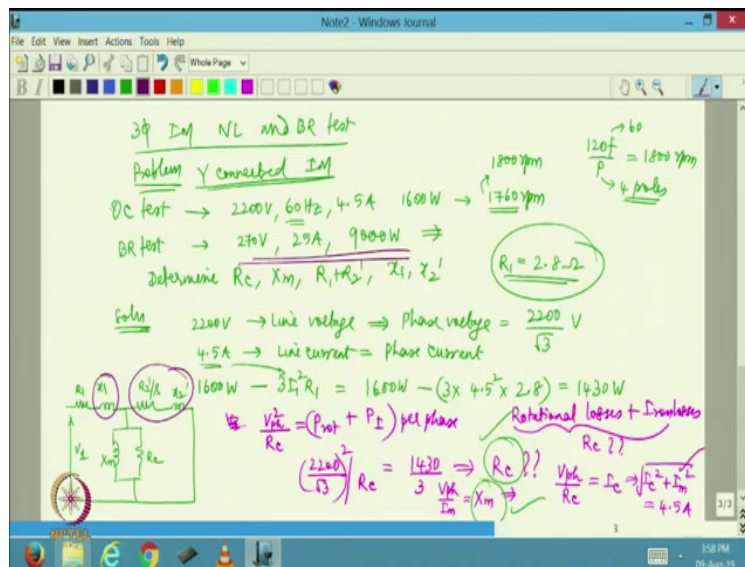 Note2 - Windows Journal
File Edit View Insert Actions Tools Help
Whole Page
B I
3φ IM NL and BR test
Problem Y connected IM
OC test → 2200V, 60Hz, 4.5A 1600W → 1760rpm
1800rpm
120f/P = 1800rpm
→ 60
→ 4 poles
BR test → 270V, 25A, 9000W ⇒
Determine Rc, Xm, R1+R2', x1, x2'
R1 = 2.8Ω
Soln 2200V → Line voltage ⇒ Phase voltage = 2200/√3 V
4.5A → Line current = Phase current
1600W − 3I1²R1 = 1600W − (3 x 4.5² x 2.8) = 1430W
R1 x1 R2'/s x2'
V1 Xm Rc
Vph²/Rc = (Prot + PI) per phase
Rotational losses + Iron losses
Rc ??
(2200/√3)²/Rc = 1430/3 ⇒ Rc ??
Vph/Rc = Ic ⇒ √Ic² + Im² = 4.5A
Vph/Im = Xm ⇒
NPTEL
3
3/3
3:58 PM
09-Aug-19